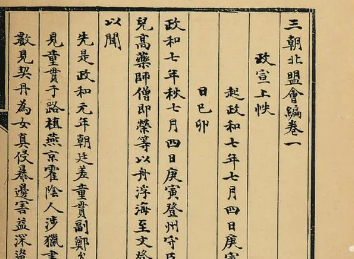 三朝北盟會編卷一
政宣上帙
起政和七年七月四日庚寅
日己卯
政和七年秋七月四日庚寅登州守臣
兒高藥師僧即榮等以舟浮海至文登
以聞
先是政和元年朝廷差童貫副鄭
見童貫于路植燕京霍陰人涉獵書
數見契丹為女真侵暴邊害益深盜